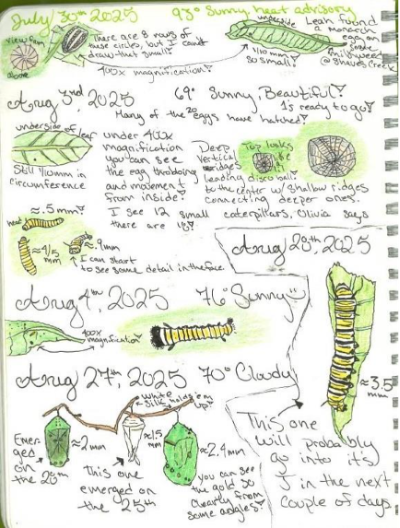 July 30th 2025   93° Sunny, heat advisory
view from
above
There are 8 rows of
these circles, but I can't
draw that small!
400x magnification!
underside
1/10 mm
so small!
Leah found
a monarch
egg on
milkweed
Aug 3rd, 2025   69° Sunny, Beautiful!
Many of the eggs have hatched!
20
4's ready to go!
underside of leaf
Still 1/10mm in
circumference
under 400x
magnification
you can see
the egg throbbing
and movement
from inside!
I see 12 small caterpillars, Olivia says
there are 18!
Deep
Vertical
ridges
Top looks like
leading disco ball
to the center w/ shallow ridges
connecting deeper ones.
≈.5 mm
≈ 4/5
mm
≈.9mm
I can start
to see some detail in the face.
Aug 4th, 2025   76° Sunny
400x
magnification
Aug 27th, 2025   70° Cloudy
White
silk holds 'em
up!
Emerged
on
the 26th
≈2mm
This one
emerged on
the 25th
≈1.5
mm
≈2.4mm
you can see
the gold so
clearly from
some angles!
Aug 28th, 2025
≈3.5
mm
This one
will probably
go into it's
J in the next
couple of days